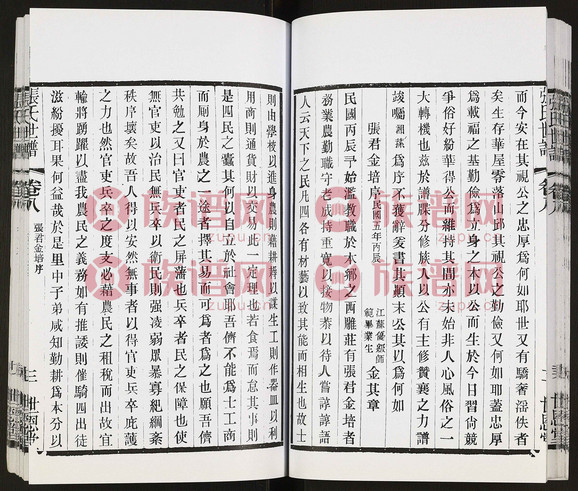 而今安在其視公之忠厚爲何如耶世又有驕奢淫佚者
矣生存華屋零落山邱其視公之勤儉又何如耶蓋忠厚
爲載福之基勤儉爲立身之本以公而生於今日習尙競
爭俗好紛華得公而維持其間亦未始非人心風俗之一
大轉機也茲於譜牒分修族人以公有主修贊襄之力譜
竣囑湘蓀爲序不獲辭爰書其顚末公其以爲何如
江蘇優級師範畢業生 金其章
張君金培序民國五年丙辰
民國丙辰予始濫敎職於本鄉之西雕莊有張君金培者
務業農勤職守老成持重寬以接物恭以待人嘗諄諄語
人云天下之民凡四各有材藝以致其能而相生也故士
則由學校以進身農則藉耕耨以謀生工則作器皿以利
用商則通貨財以貿易此一定理也若食焉而怠其事則
是四民之蠹其何以自立於社會耶吾儕不能爲士工商
而厠身於農之一途者擇其易而可爲者爲之也願吾儕
共勉之又曰官吏者民之屛藩也兵卒者民之保障也使
無官吏以治民無兵卒以衞民則强凌弱眾暴寡紀綱紊
秩序壞矣故吾人得以安然無事者以得官吏兵卒庇護
之力也然官吏兵卒之度支必藉農民之租稅而出故官
輸將踴躍以盡我農民之義務如有推諉則催騎四出徒
滋紛擾耳果何益哉於是里中子弟咸知勤耕爲本分以
張氏世譜
卷八
張君金培序
三
世恩堂
張氏世譜
卷八
世恩堂
族谱网
zupu.cn
族谱网
zupu.cn
族谱网
zupu.cn
族谱网
zupu.cn